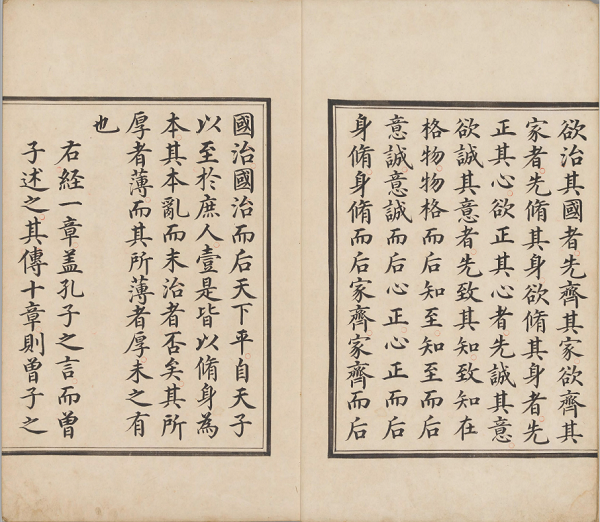 欲治其國者先齊其家欲齊其
家者先脩其身欲脩其身者先
正其心欲正其心者先誠其意
欲誠其意者先致其知致知在
格物物格而后知至知至而后
意誠意誠而后心正心正而后
身脩身脩而后家齊家齊而后
國治國治而后天下平自天子
以至於庶人壹是皆以脩身為
本其本亂而末治者否矣其所
厚者薄而其所薄者厚未之有
也
右經一章盖孔子之言而曾
子述之其傳十章則曾子之